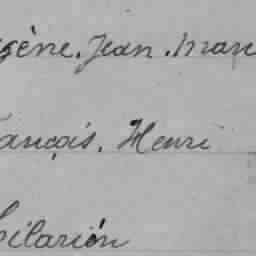 sène. Jean. Mari
ançois. Henri
ilarion